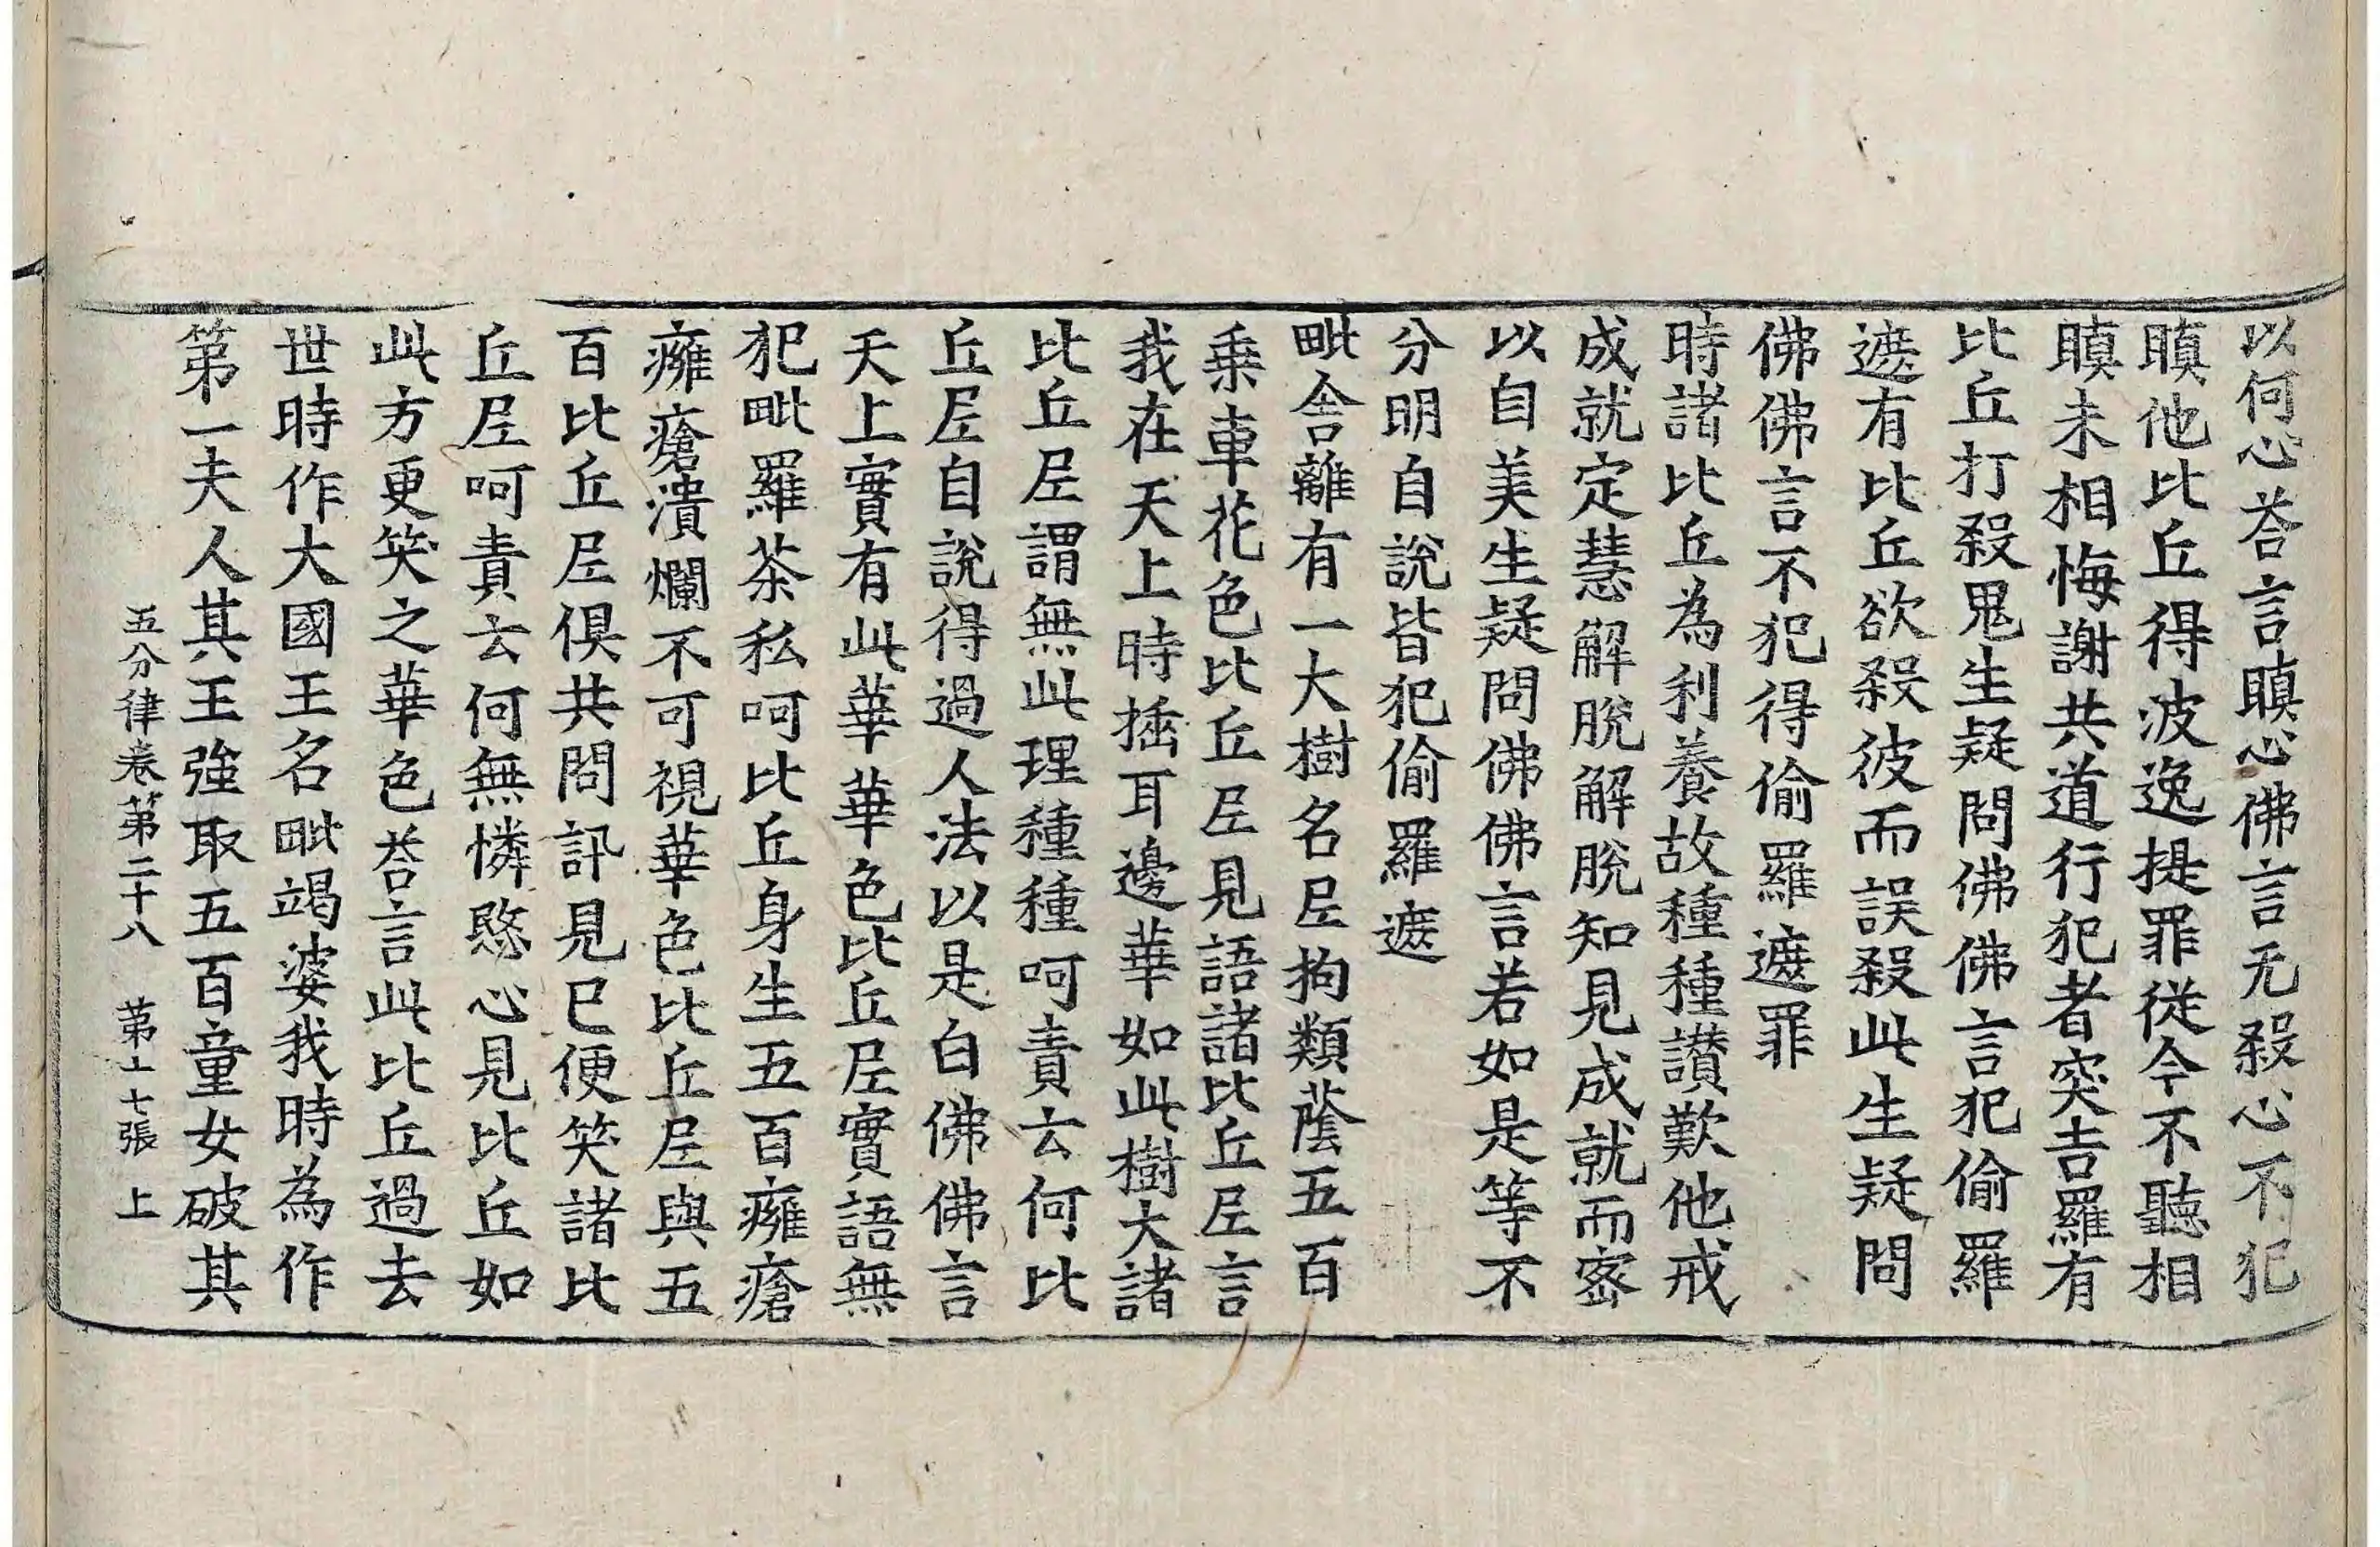 以何心荅言瞋心佛言无殺心不犯
瞋他比丘得波逸提罪從今不聽相
瞋未相悔謝共道行犯者突吉羅有
比丘打殺鬼生疑問佛佛言犯偷羅
遮有比丘欲殺彼而誤殺此生疑問
佛佛言不犯得偷羅遮罪
時諸比丘為利養故種種讃歎他戒
成就定慧解脫解脫知見成就而密
以自美生疑問佛佛言若如是等不
分明自說皆犯偷羅遮
毗舍離有一大樹名尼拘類蔭五百
乗車花色比丘尼見語諸比丘尼言
我在天上時插耳邊華如此樹大諸
比丘尼謂無此理種種呵責云何比
丘尼自說得過人法以是白佛佛言
天上實有此華華色比丘尼實語無
犯毗羅茶私呵比丘身生五百癰瘡
癰瘡潰爛不可視華色比丘尼與五
百比丘尼俱共問訊見已便笑諸比
丘尼呵責云何無憐愍心見比丘如
此方更笑之華色荅言此比丘過去
世時作大國王名毗竭婆我時為作
第一夫人其王強取五百童女破其
五分律卷第二十八 第十七張 上